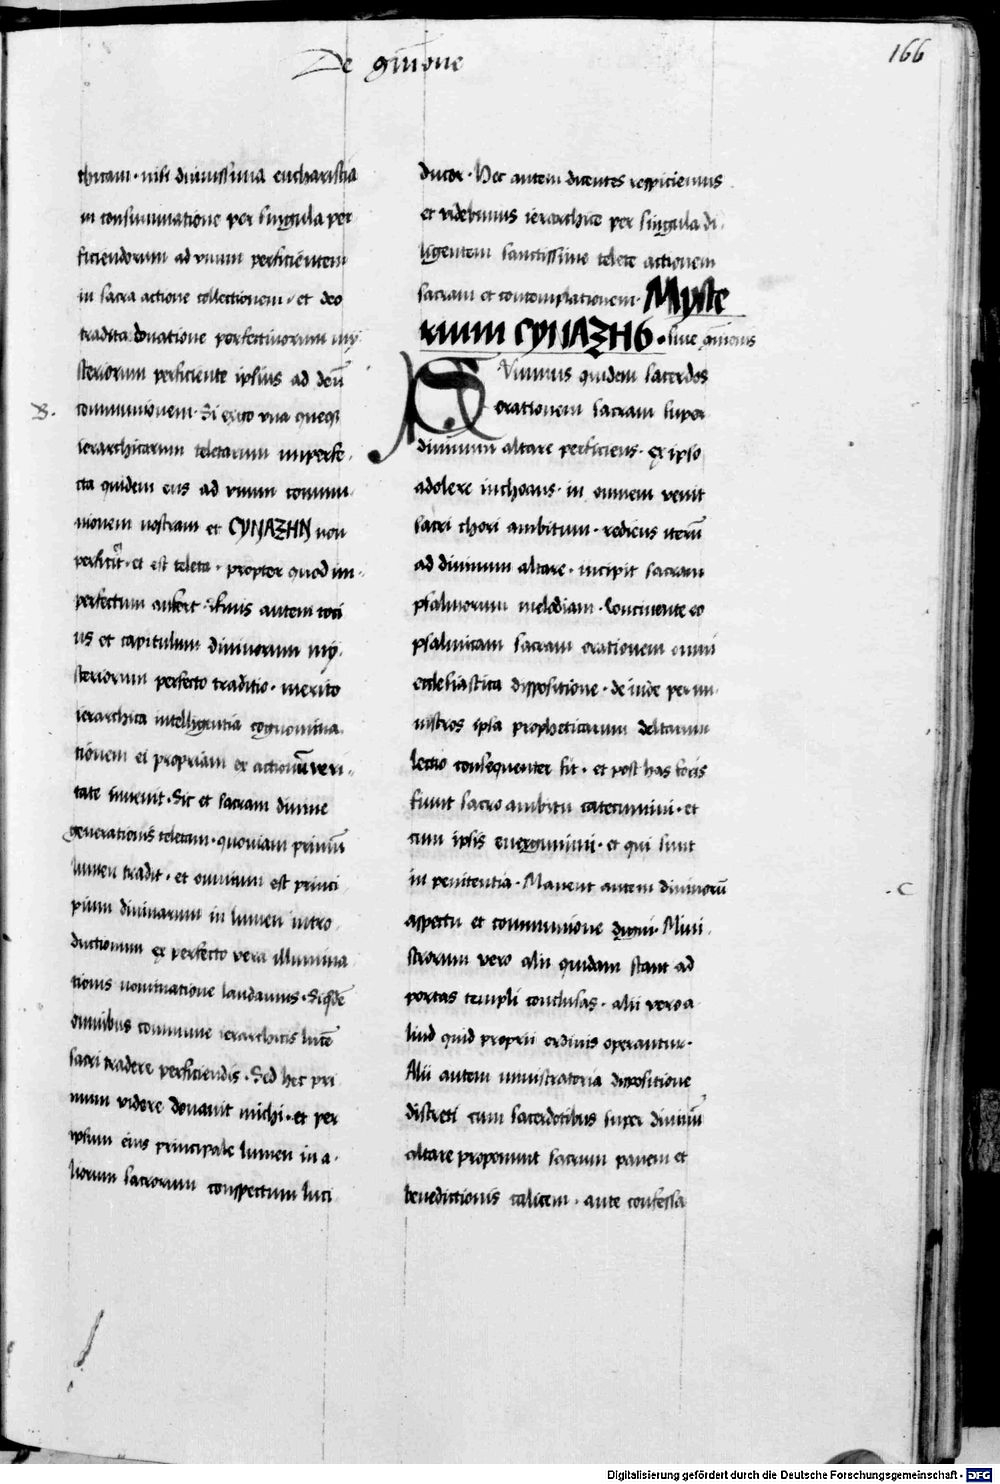 De g̅nione
166
thicam · nisi diuinissima eucharistia
in consummatione per singula per
ficiendorum ad vnum perficientem
in sacra actione collectionem · et deo
tradita donatione perfectiuorum my
steriorum perficiente ipsius ad deū
B.
communionem · Si ergo vna queqȝ
ierarchicarum teletarum imperfe-
cta quidem ens ad vnum commu-
nionem nostram et CYNAZHN non
perficit · et est teleta · propter quod im-
perfectum aufert · finis autem toti
us et capitulum diuinorum my-
steriorum perfecto traditio · merito
ierarchica intelligentia cognomina
tionem ei propriam ex actionū veri-
tate inuenit · Sic et sacram diuine
generationis teletam · quoniam primū
lumen tradit · et omnium est princi
pium diuinarum in lumen intro-
ductionum ex perfecto vera illumina
tionis nominatione laudamus · Siqdē
omnibus commune ierarchicis lucē
sacri tradere perficiendis · Sed hec pri
mum videre donauit michi · et per
ipsum eius principale lumen in a-
liorum sacrorum conspectum luci
ducor · Hec autem dicentes respiciemus
et videbimus ierarchice per singula di-
ligentem sanctissime telete actionem
sacram et contemplationem · Myste
rium CYNAZHC · siue q̅nionis
Diuinus quidem sacerdos
orationem sacram super
diuinum altare perficiens · ex ipso
adolere inchoans · in omnem venit
sacri chori ambitum · rediens iterū
ad diuinum altare · incipit sacram
psalmorum melodiam · Concinente eo
psalmicam sacram orationem omni
ecclesiastica dispositione · deinde per mi-
nistros ipsa propheticarum deltarum
lectio consequenter fit · et post has foris
fiunt sacro ambitu catecumini · et
cum ipsis energumini · et qui sunt
in penitentia · Manent autem diuinorū
C
aspectu et communione digni · Mini-
strorum vero alii quidam stant ad
portas templi conclusas · alii vero a
liud quid proprii ordinis operantur ·
Alii autem ministratoria dispositione
discreti cum sacerdotibus super diuinū
altare proponunt sacrum panem et
benedictionis calicem · ante confessa
Digitalisierung gefördert durch die Deutsche Forschungsgemeinschaft - DFG